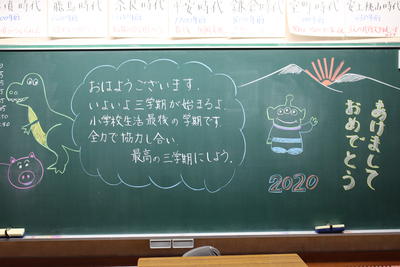 飛鳥時代
奈良時代
平安時代
鎌倉時代
室町時代
安土桃山時代
おはようございます.
いよいよ三学期が始まるよ.
小学校生活最後の学期です.
全力で協力し合い
最高の三学期にしよう.
あけまして
おめでとう
2020